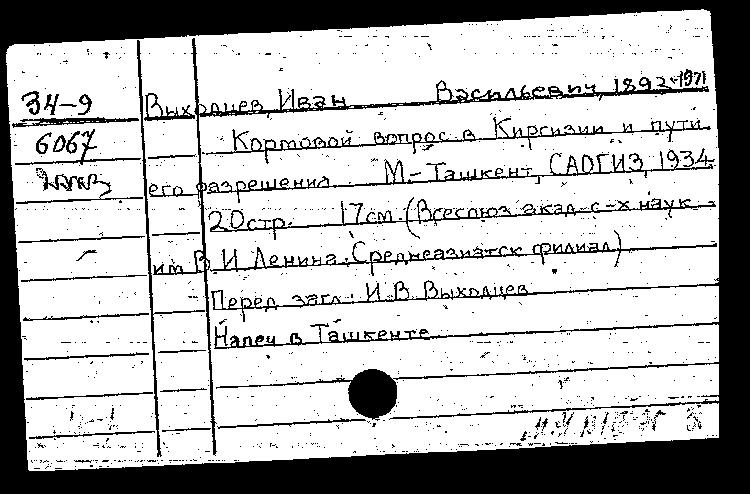 34-9 Выходцев, Иван Васильевич, 1892-1971
6067 Кормовой вопрос в Киргизии и пути
его разрешения М.-Ташкент, САОГИЗ, 1934
20стр. 17см. (Всесоюз акад-с-х наук
им В И Ленина. Среднеазиатск филиал)
Перед загл: И.В. Выходцев
Напеч в Ташкенте